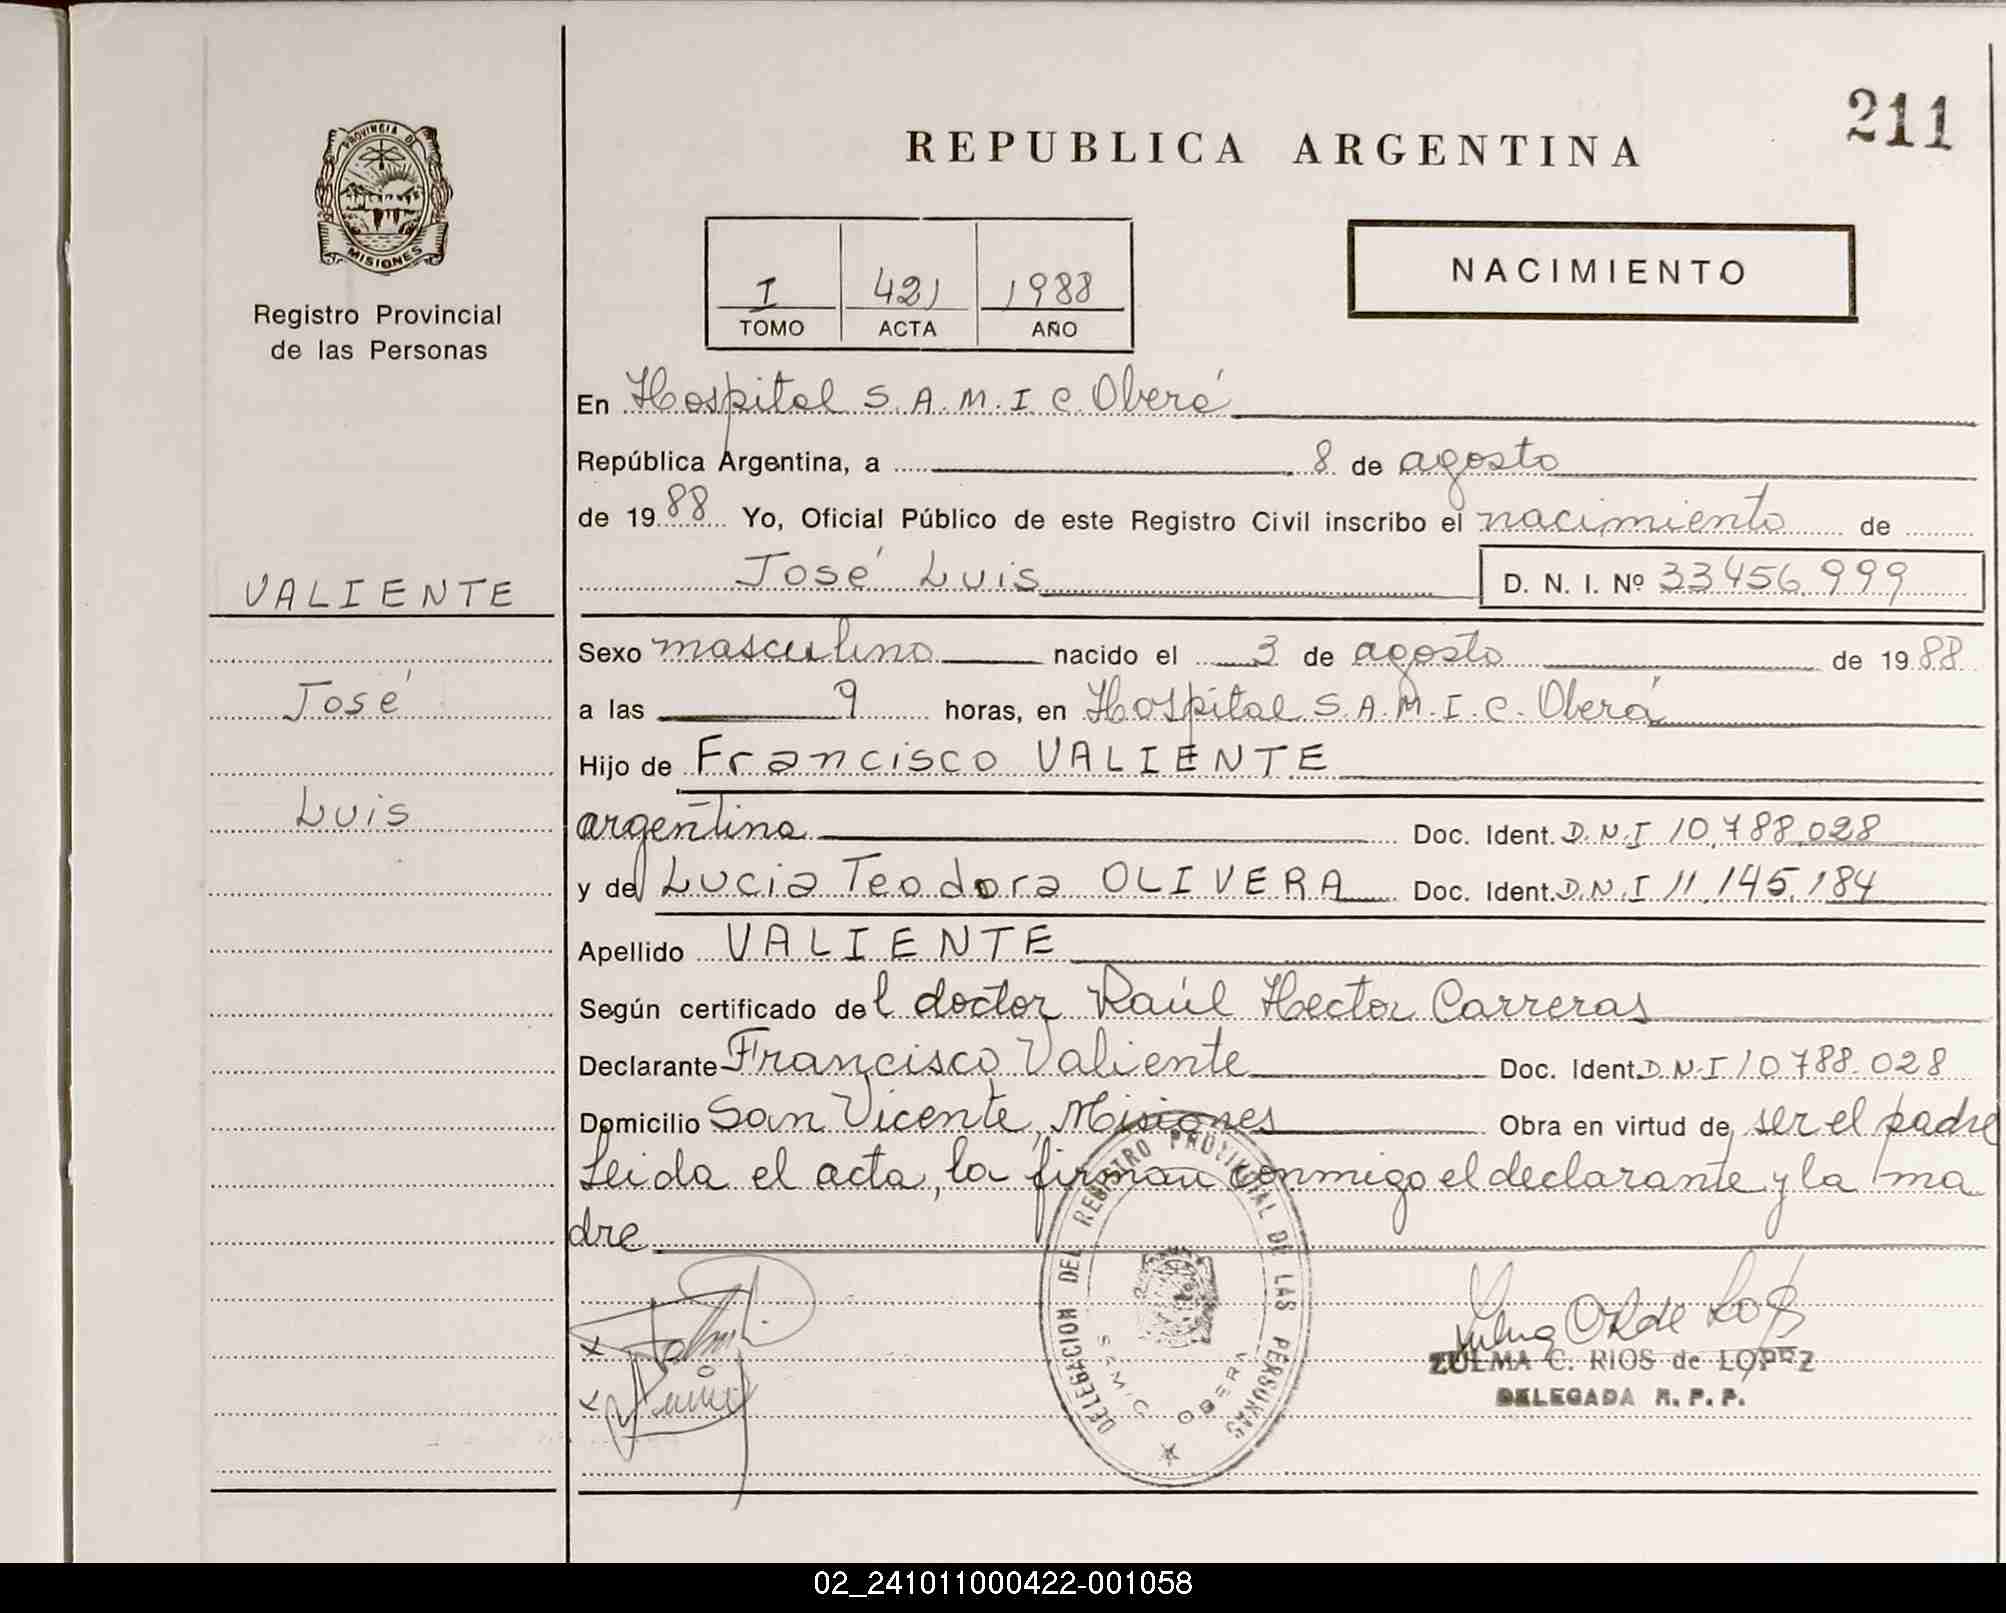 211
REPUBLICA ARGENTINA
PROVINCIA DE
MISIONES
Registro Provincial
de las Personas
NACIMIENTO
I 421 1988
TOMO ACTA AÑO
En Hospital S.A.M.I.C. Oberá
República Argentina, a 8 de agosto
de 1988 Yo, Oficial Público de este Registro Civil inscribo el nacimiento de
José Luis D. N. I. Nº 33.456.999
VALIENTE
José
Luis
Sexo masculino nacido el 3 de agosto de 1988
a las 9 horas, en Hospital S.A.M.I.C. Oberá
Hijo de Francisco VALIENTE
argentina Doc. Ident. D.N.I 10.788.028
y de Lucia Teodora OLIVERA Doc. Ident. D.N.I 11.145.184
Apellido VALIENTE
Según certificado del doctor Raúl Hector Carreras
Declarante Francisco Valiente Doc. Ident. D.N.I 10.788.028
Domicilio San Vicente, Misiones Obra en virtud de ser el padre
Leida el acta, la firman conmigo el declarante y la ma
dre
DELEGACION DEL REGISTRO PROVINCIAL DE LAS PERSONAS
SAMIC OBERA
ZULMA C. RIOS de LOPEZ
DELEGADA R. P. P.
02_241011000422-001058